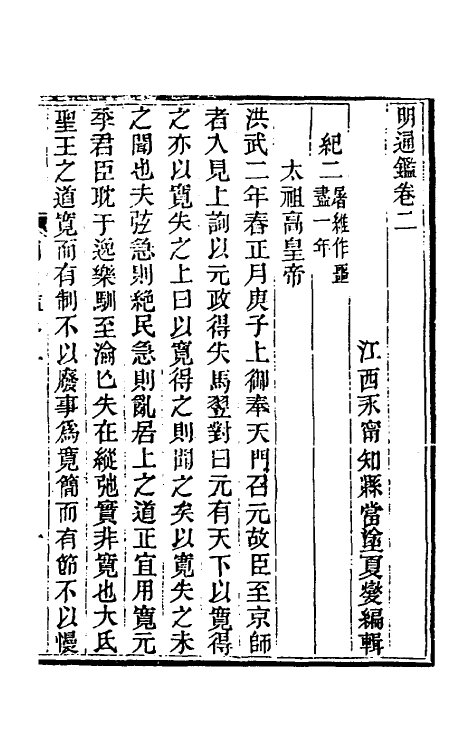 明通鑑卷二
江西永甯知縣當塗夏燮編輯
紀二屠維作噩
盡一年
太祖高皇帝
洪武二年春正月庚子上御奉天門召元故臣至京師
者入見上詢以元政得失馬翌對曰元有天下以寬得
之亦以寬失之上曰以寬得之則聞之矣以寬失之未
之聞也夫弦急則絕民急則亂居上之道正宜用寬元
季君臣耽于逸樂馴至淪亾失在縱弛實非寬也大氐
聖王之道寬而有制不以廢事爲寬簡而有節不以慢